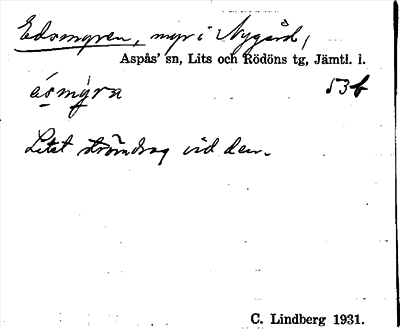 Edsmyren, myr i Nygård,
Aspås' sn, Lits och Rödöns tg, Jämtl. l.
ésmýra 53f
Litet strömdrag vid den.
C. Lindberg 1931.